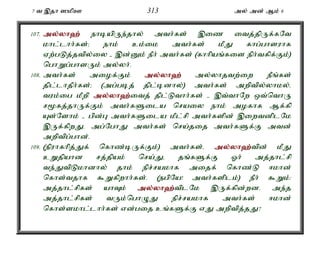 7 வ இதா ஸமிஊ 313 அல் அன் ஆம் 6
107. அல்லாஹ் நாடியிருந்தால் அவர்கள் இணை வைத்திருக்கவே
மாட்டார்கள்; நாம் உம்மை அவர்கள் மீது காப்பாளராக
ஏற்படுத்தவில்லை - இன்னும் நீர் அவர்கள் (காரியங்களை நிர்வகிக்கும்)
பொறுப்பாளரும் அல்லர்.
108. அவர்கள் அழைக்கும் அல்லாஹ் அல்லாதவற்றை நீங்கள்
திட்டாதீர்கள்; (அப்படித் திட்டினால்) அவர்கள் அறிவில்லாமல்,
வரம்பை மீறி அல்லாஹ்வைத் திட்டுவார்கள் - இவ்வாறே ஒவ்வொரு
சமூகத்தாருக்கும் அவர்களுடைய செயலை நாம் அழகாக ஆக்கி
யுள்ளோம் - பின்பு அவர்களுடைய மீட்சி அவர்களின் இறைவனிடமே
இருக்கிறது. அப்போது அவர்கள் செய்ததை அவர்களுக்கு அவன்
அறிவிப்பான்.
109. (நிராகரித்துக் கொண்டிருக்கும்) அவர்கள், அல்லாஹ்வின் மீது
உறுதியான சத்தியம் செய்து, தங்களுக்கு ஓர் அத்தாட்சி
வந்துவிடுமானால் தாம் நிச்சயமாக அதைக் கொண்டு ஈமான்
கொள்வதாக கூறுகிறார்கள். (நபியே! அவர்களிடம்) நீர் கூறும்:
அத்தாட்சிகள் யாவும் அல்லாஹ்விடமே இருக்கின்றன. அந்த
அத்தாட்சிகள் வரும்பொழுது நிச்சயமாக அவர்கள் ஈமான்
கொள்ளமாட்டார்கள் என்பதை உங்களுக்கு எது அறிவித்தது?